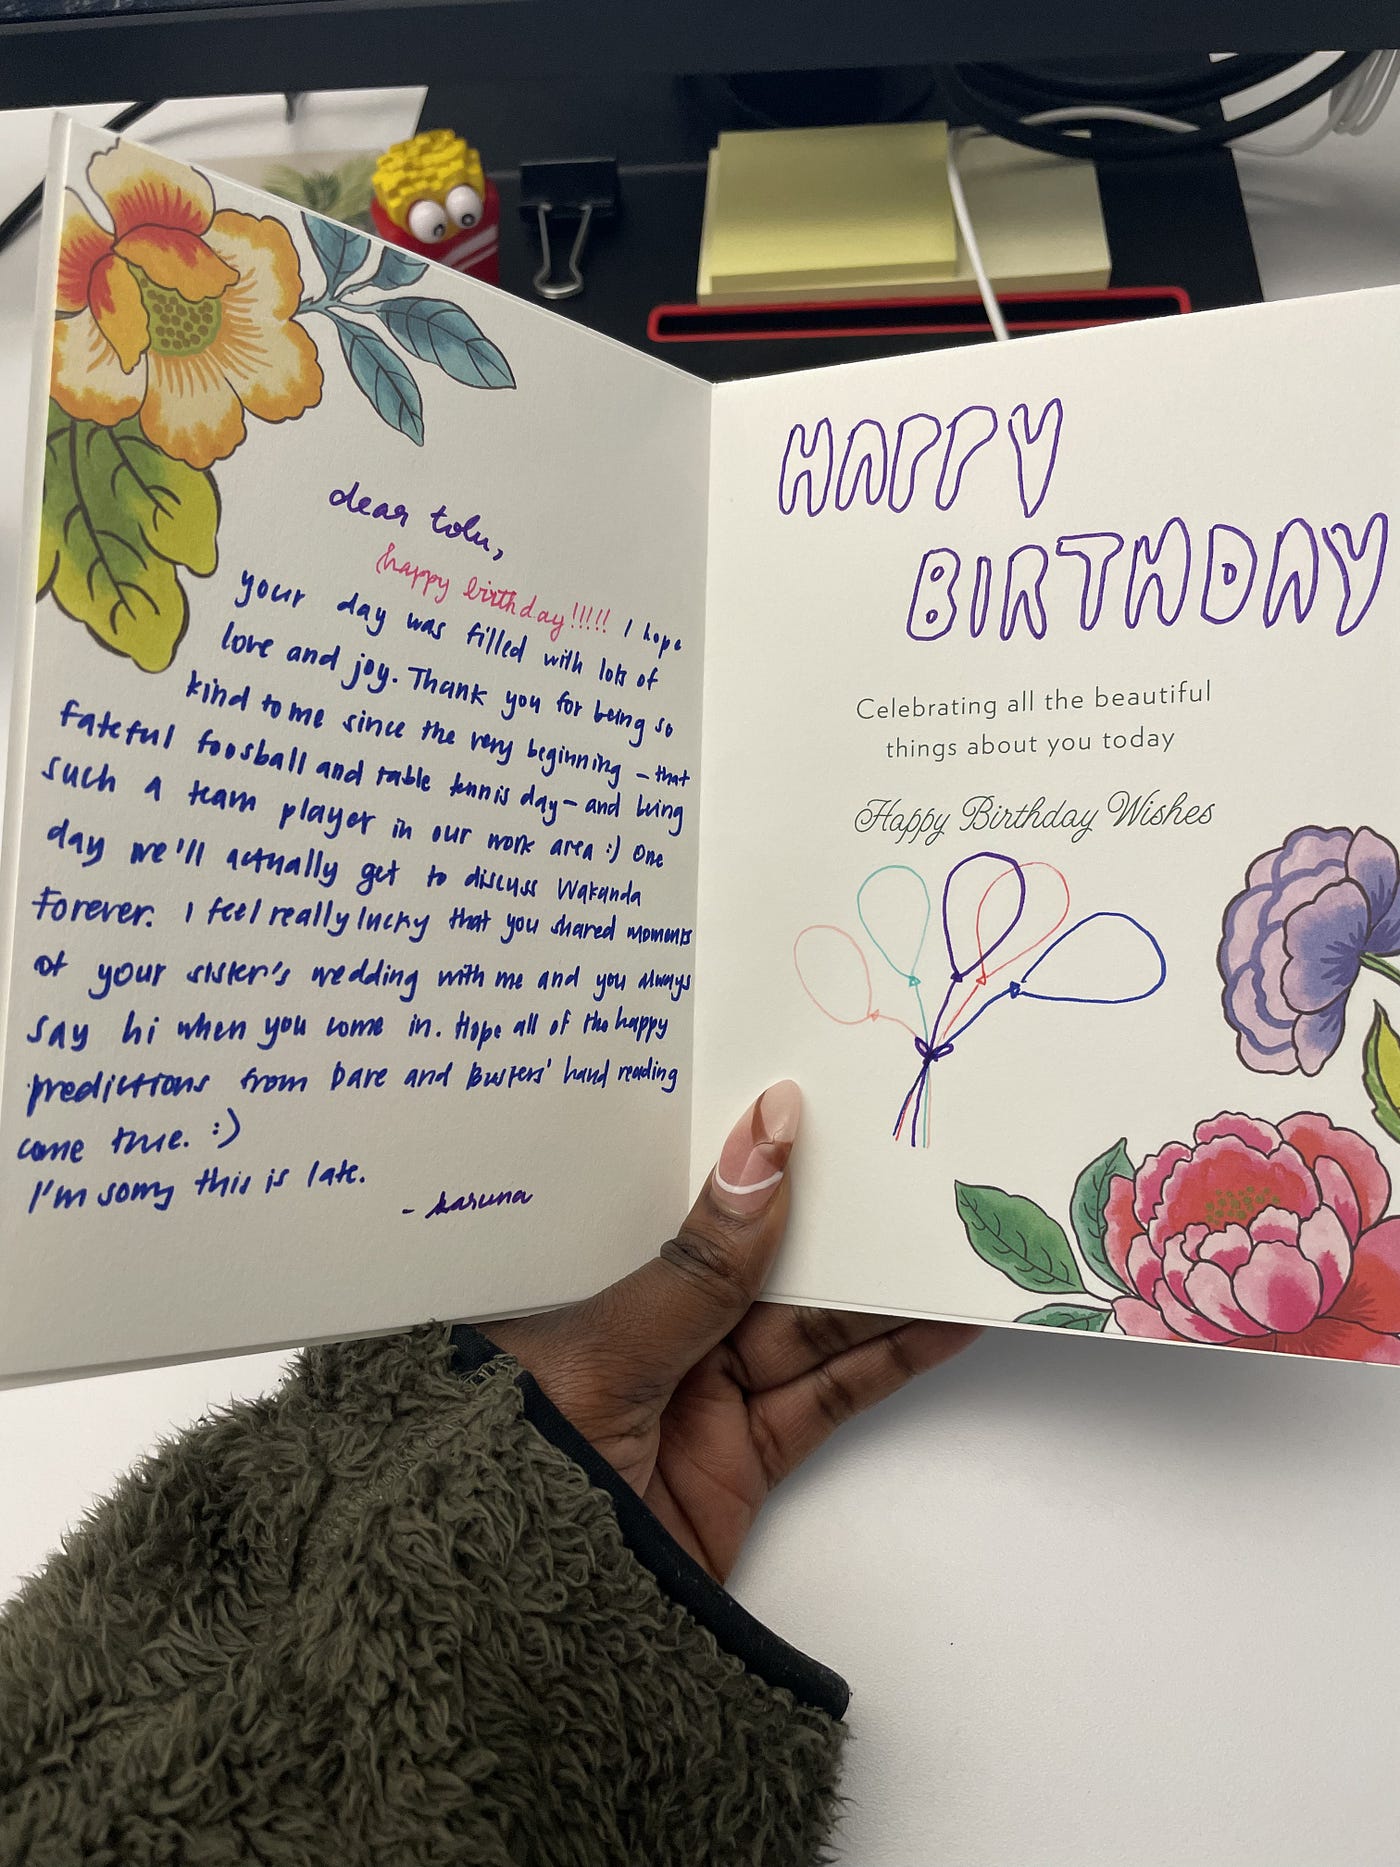 dear tolu,
happy birthday!!!!! I hope
your day was filled with lots of
love and joy. Thank you for being so
kind to me since the very beginning – that
fateful foosball and table tennis day – and being
such a team player in our work area :) One
day we'll actually get to discuss Wakanda
Forever. I feel really lucky that you shared moments
of your sister's wedding with me and you always
say hi when you come in. Hope all of the happy
predictions from Dave and Busters' hand reading
come true. :)
I'm sorry this is late.
- karuna
HAPPY
BIRTHDAY
Celebrating all the beautiful
things about you today
Happy Birthday Wishes